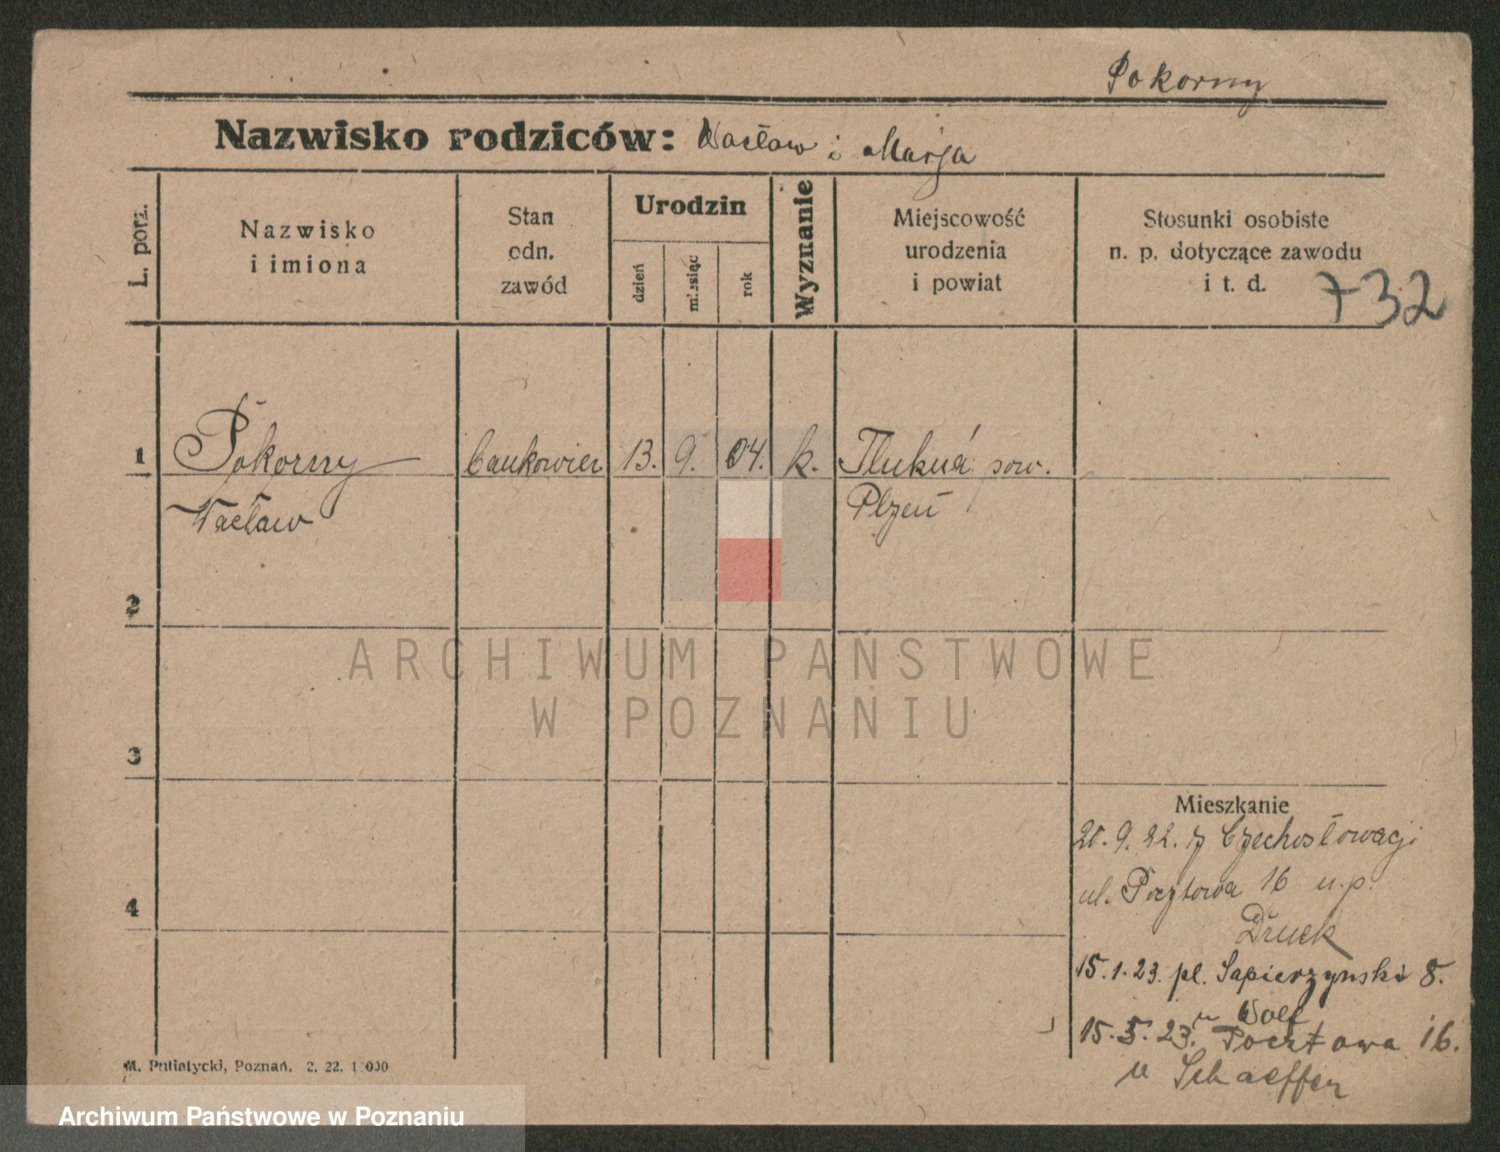 Pokorny
Nazwisko rodziców: Wacław i Marja
L. porz.
Nazwisko
i imiona
Stan
odn.
zawód
Urodzin
dzień
miesiąc
rok
Wyznanie
Miejscowość
urodzenia
i powiat
Stosunki osobiste
n. p. dotyczące zawodu
i t. d.
732
1 Pokorny cukrowiec 13. 9. 04. k. Tlukná pow.
Wacław Plzeń
2
3
4
Mieszkanie
20. 9. 22. z Czechosłowacji
ul. Pocztowa 16 u. p.
Druck
15. 1. 23. pl. Sapierzynski 8.
u Wolf
15. 5. 23. Pocztowa 16.
u Schaeffer
M. Putiatycki, Poznań. 2. 22. 1 000
ARCHIWUM PAŃSTWOWE
W POZNANIU
Archiwum Państwowe w Poznaniu